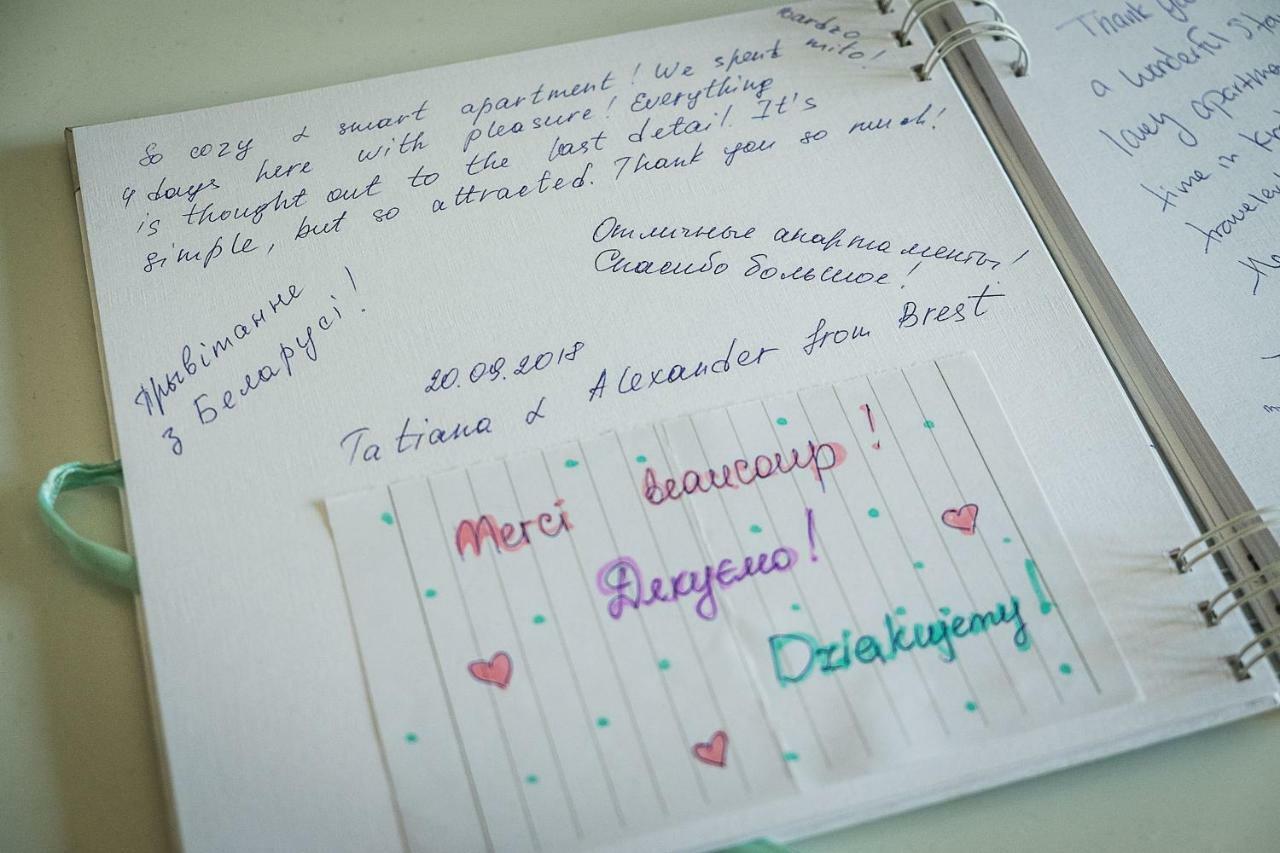 bardzo
miło!
So cozy & smart apartment! We spent
4 days here with pleasure! Everything
is thought out to the last detail. It's
simple, but so attracted. Thank you so much!
Отличные апартаменты!
Спасибо большое!
Прывітанне
з Беларусі!
20.09.2018
Tatiana & Alexander from Brest
Merci beaucoup!
Дякуємо!
Dziakujemy!
Thank
a wonderful
lovely
time in